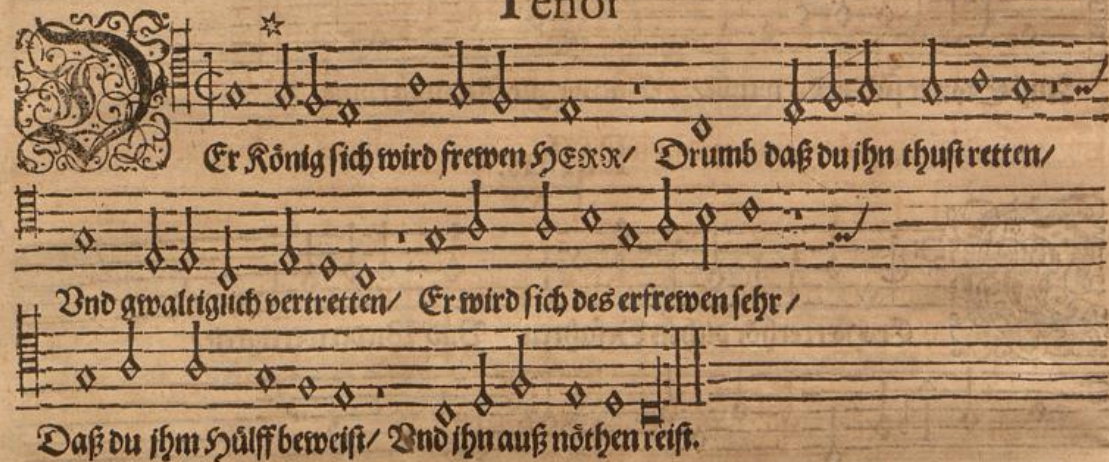 Tenor
DEr König sich wird frewen HERR/ Drumb daß du jhn thust retten/
Vnd gwaltiglich vertretten/ Er wird sich des erfrewen sehr/
Daß du jhm Hülff beweist/ Vnd jhn auß nöthen reist.